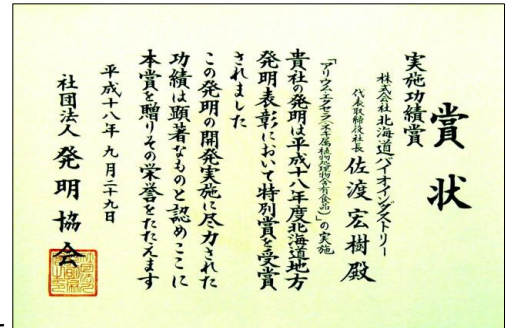 賞状
実施功績賞
株式会社北海道バイオインダストリー
代表取締役社長 佐渡宏樹殿
「アリウスエクセラ(ネギ属植物処理物含有食品)」の実施
貴社の発明は平成十八年度北海道地方
発明表彰において特別賞を受賞
されました
この発明の開発実施に尽力された
功績は顕著なものと認めここに
本賞を贈りその栄誉をたたえます
平成十八年九月二十九日
社団法人 発明協会